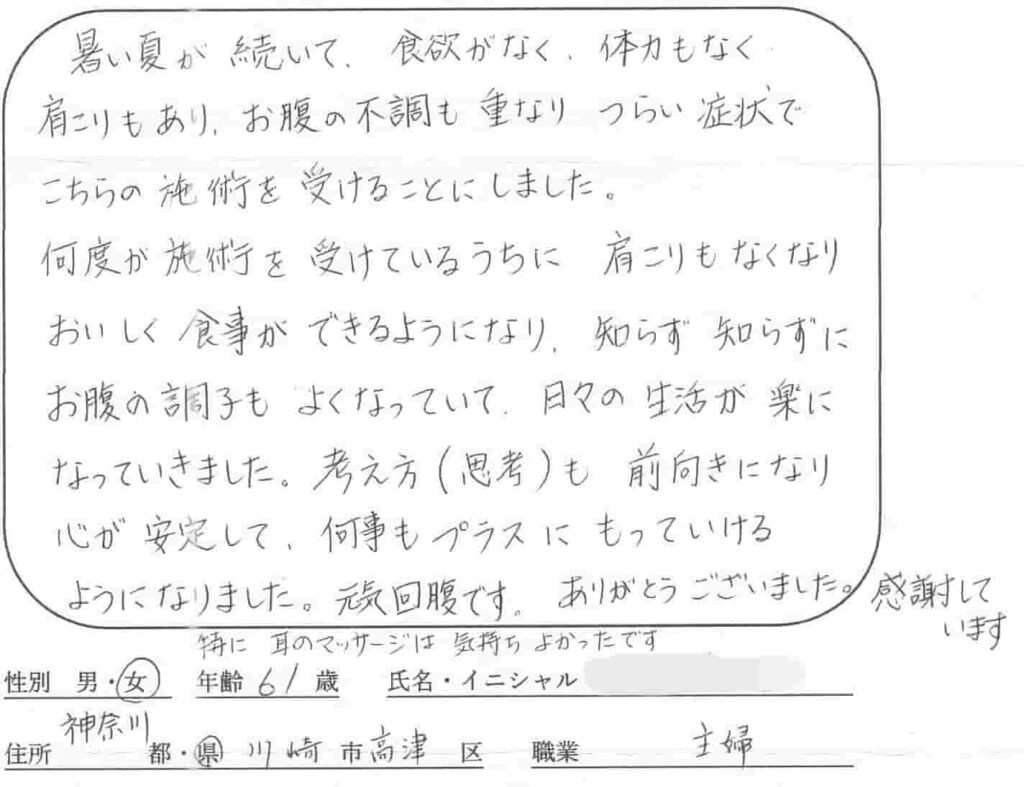 暑い夏が続いて、食欲がなく、体力もなく
肩こりもあり、お腹の不調も重なり つらい症状で
こちらの施術を受けることにしました。
何度か施術を受けているうちに 肩こりもなくなり
おいしく食事ができるようになり、知らず知らずに
お腹の調子も よくなっていて、日々の生活が楽に
なっていきました。考え方(思考)も 前向きになり
心が安定して、何事もプラスにもっていける
ようになりました。元気回腹です。ありがとうございました。感謝して
います
特に 耳のマッサージは 気持ちよかったです
性別 男・女 年齢 61 歳 氏名・イニシャル
住所 神奈川 都・県 川崎 市 高津 区 職業 主婦